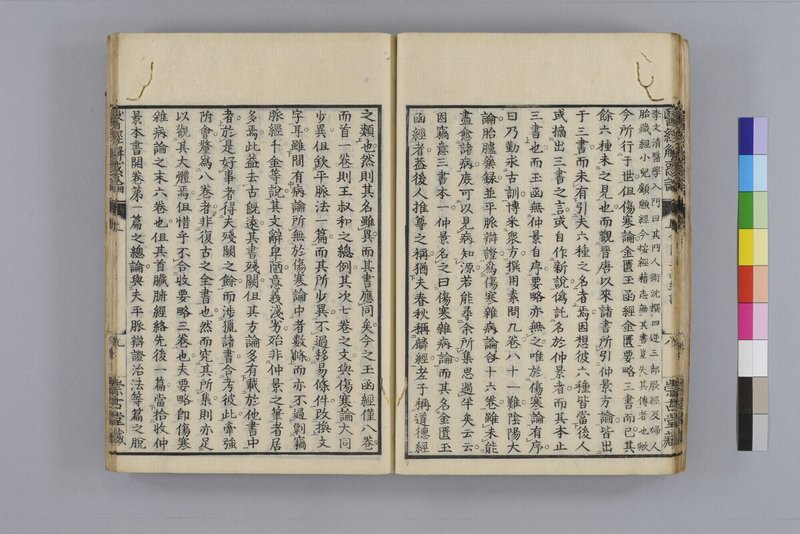 李文清醫學入門曰其門人衛沈撰四逆三部厥經及婦人
胎藏經小兒顱顖經今按經籍志無其書豈失其傳者也歟
今所行于世但傷寒論金匱玉函經金匱要略三書而已其
餘六種未之見也而觀晉唐以來諸書所引仲景方論皆出
于三書而未有引夫六種之名者焉因想彼六種皆當後人
或摘出三書之言或自作新說偽託名於仲景者而其本止
三書也而玉函無仲景自序要略亦無之唯於傷寒論有序
曰乃勤求古訓博采衆方撰用素問九卷八十一難陰陽大
論胎臚藥錄並平脈辯證爲傷寒雜病論合十六卷雖未能
盡愈諸病庶可以見病知源若能尋余所集思過半矣云云
因竊意三書本一仲景名之曰傷寒雜病論而其名金匱玉
函經者蓋後人推尊之稱猶夫春秋稱麟經老子稱道德經
之類也然則其名雖異而其書應同矣今之玉函經僅八卷
而首一卷則王叔和之總例其次七卷之文與傷寒論大同
少異但欽平脈法一篇而其所少異不過移易條件改換文
字耳雖間有病論所無於傷寒論中者數條而亦不過剽竊
脈經千金等說其文辭卑陋意義淺劣殆非仲景之筆者居
多焉此益去古既遠其書殘闕但其方論多有載於他書中
者於是好事者得夫殘闕之餘而涉獵諸書合考彼此牽強
附會贅爲八卷者非復古之全書也然而究其所集則亦足
以觀其大體焉但惜乎不合收要略三卷也夫要略即傷寒
雜病論之末六卷也但其首臟腑經絡先後一篇當拾收仲
景本書開卷第一篇之總論與夫平脈辯證治法等篇之脫
醫經解惑論
崇古堂藏